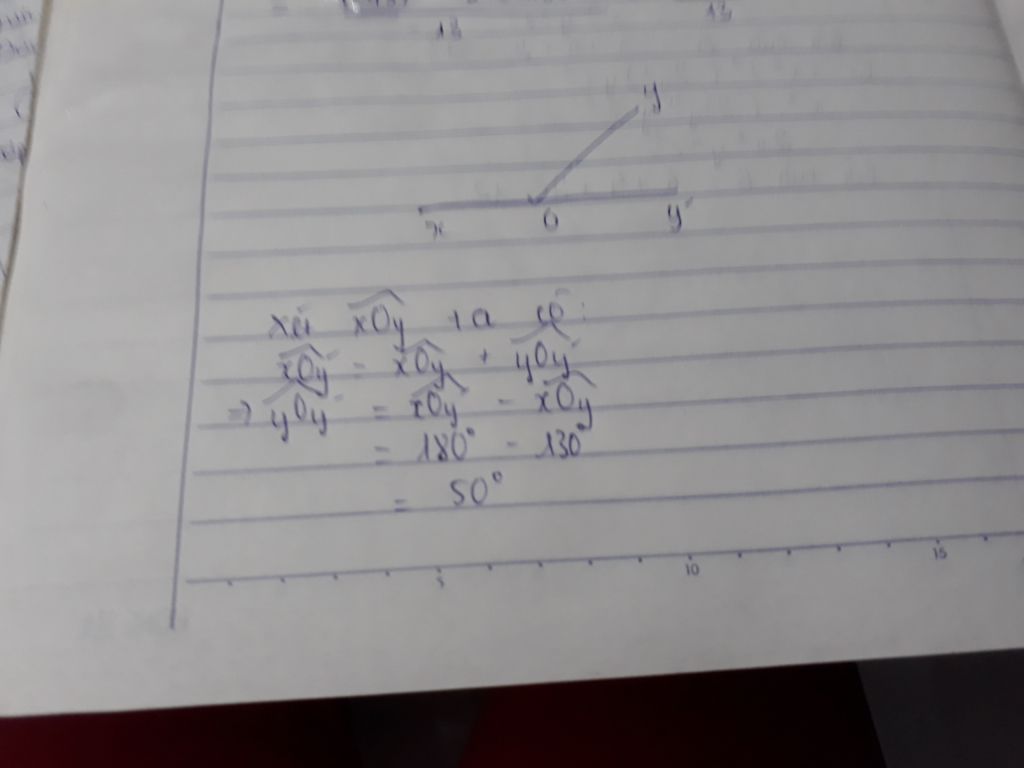 13
13
y
x O y'
xét xOy ta có:
xOy' = xOy + yOy'
=> yOy' = xOy' - xOy
= 180° - 130°
= 50°
5 10 15